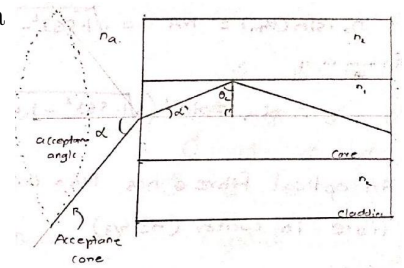 na.
n2
n1
θc
α'
α
acceptan
angle
Core
n2
Claddin
Acceptane
cone